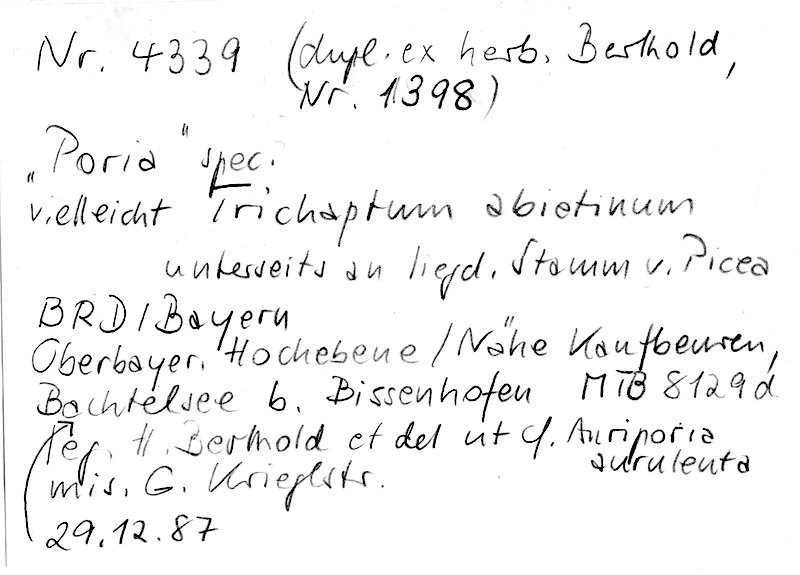 Nr. 4339 (dupl. ex herb. Berthold,
Nr. 1398)
„Poria" spec.
vielleicht Trichaptum abietinum
unterseits an liegd. Stamm v. Picea
BRD/Bayern
Oberbayer. Hochebene / Nähe Kaufbeuren,
Bachtelsee b. Bissenhofen MTB 8129d
leg. H. Berthold et det ut cf. Auriporia
aurulenta
mis. G. Krieglstr.
29.12.87